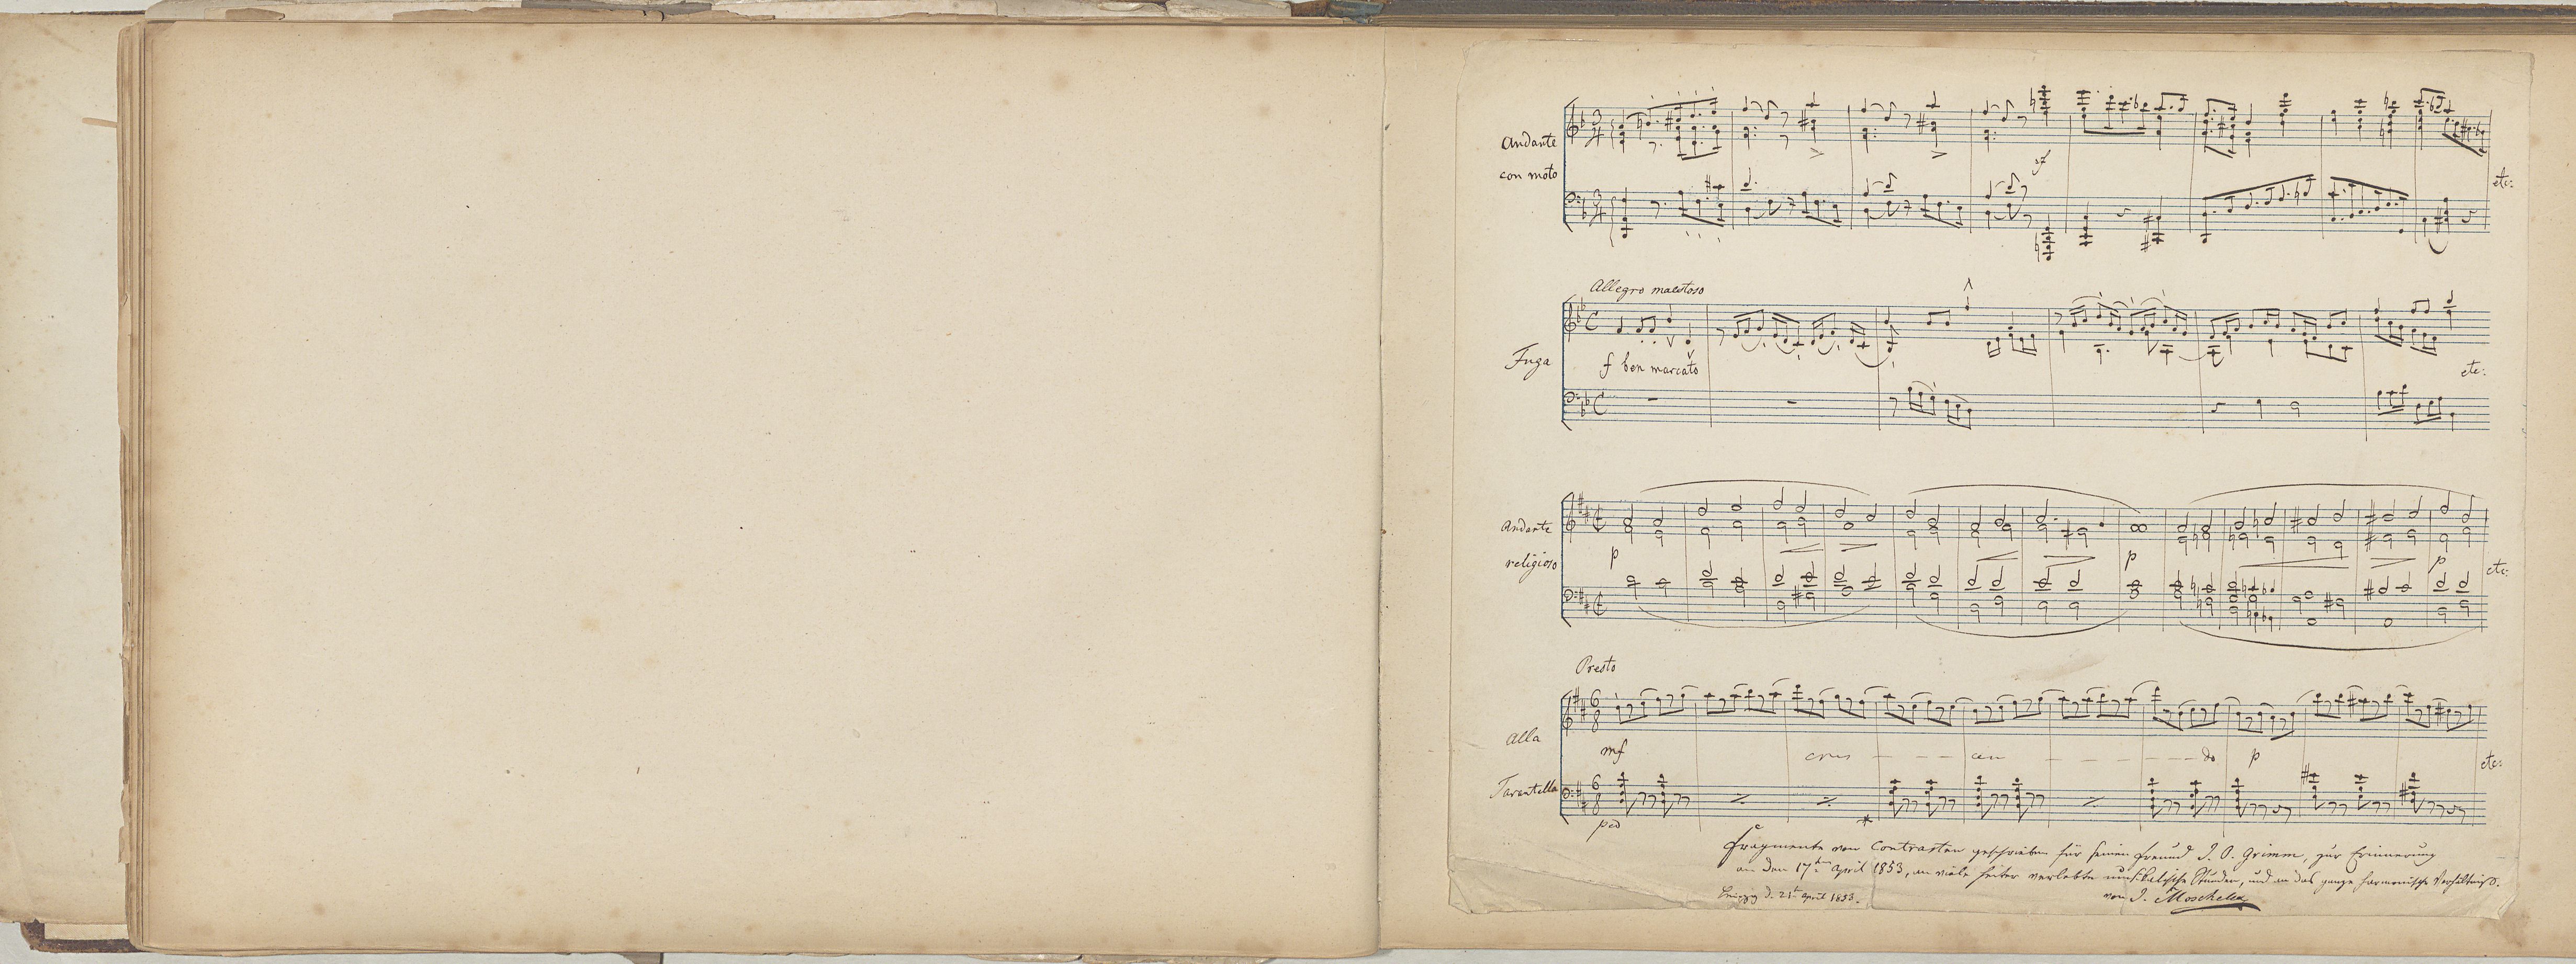 Andante
con moto
3
4
3
4
sf
etc:
Allegro maestoso
Fuga
f ben marcato
etc:
Andante
religioso
p
p
p
etc:
Presto
Alla
Tarantella
6
8
6
8
mf
cres - - - cen - - - - - do
p
etc:
ped
Fragmente von Contrasten geschrieben für seinen Freund J. O. Grimm, zur Erinnerung
an den 17ten April 1853, an viele heiter verlebte musikalische Stunden, und an das ganze harmonische Verhältniss.
von J. Moscheles
Leipzig d. 21t April 1853.